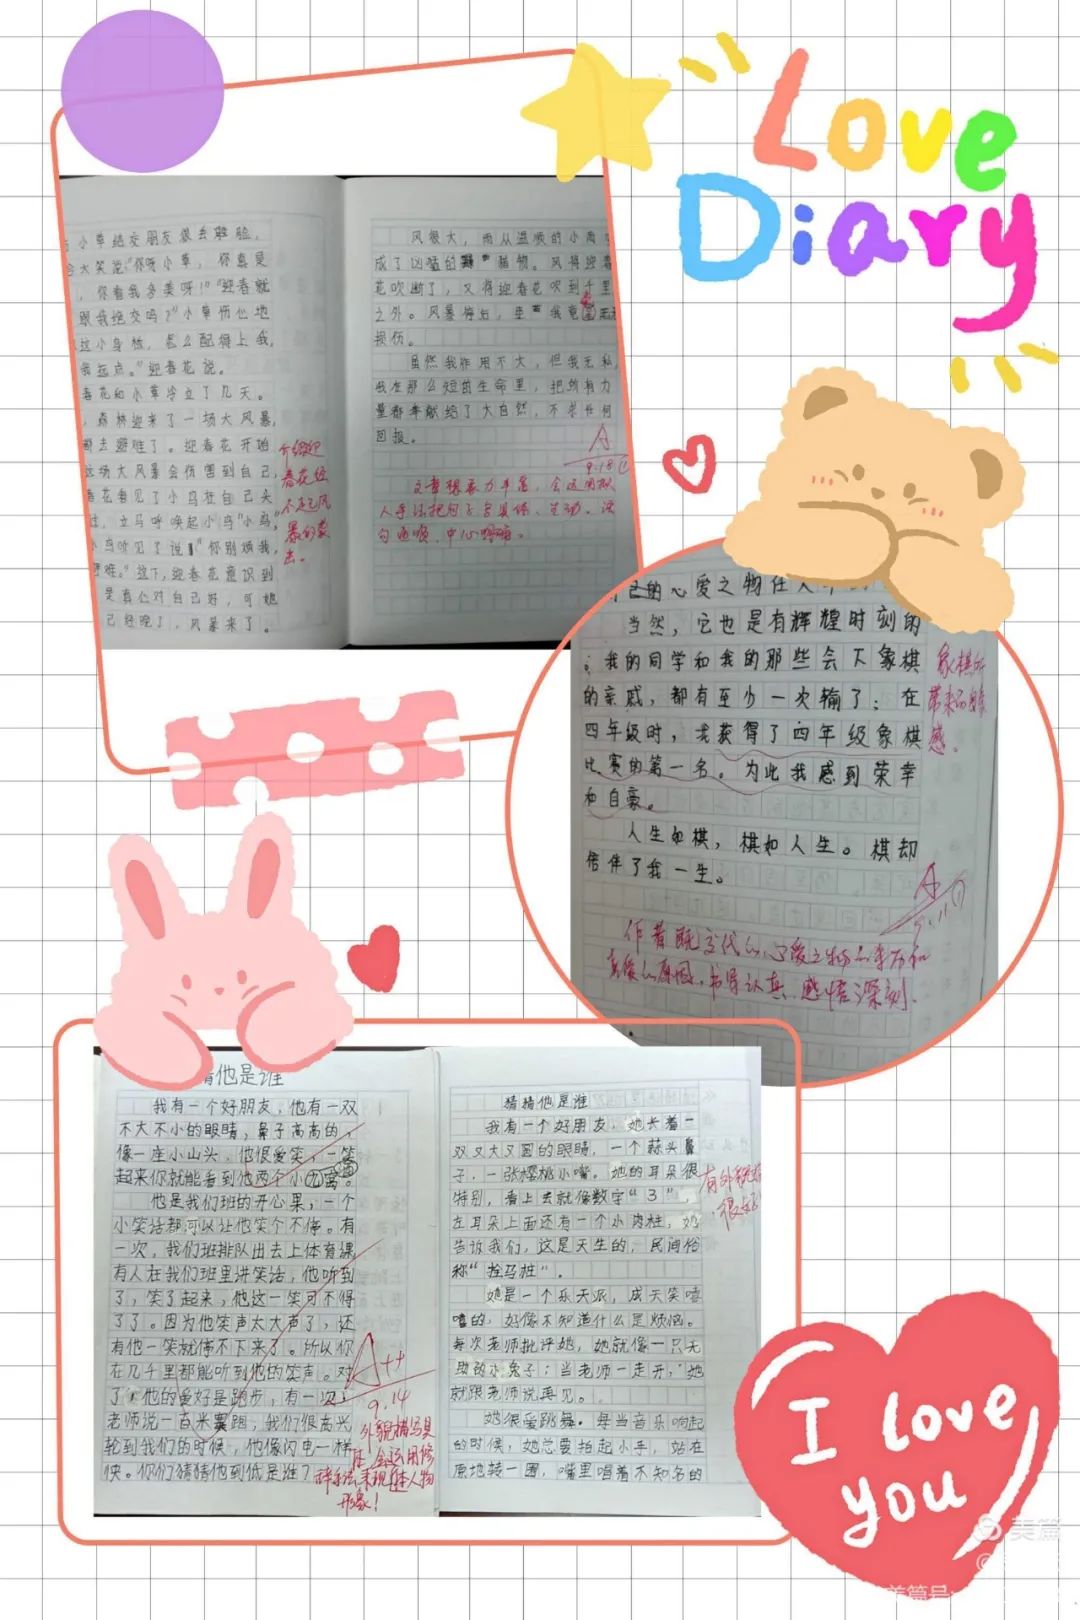 Love
Diary
小草结交朋友很去体验，
大笑说"你呀小草，你真是
，你看我多美呀！"迎春就
跟我绝交吗？"小草伤心地
这小身板，怎么配得上我，
我远点。"迎春花说。
春花和小草冷立了几天。
森林迎来了一场大风暴，
都去避难了。迎春花开始
这场大风暴会伤害到自己，
春花看见了小鸟往自己头
过，立马呼唤起小鸟"小鸟，
小鸟听见了说"你别烦我，
难。"这下，迎春花意识到
是真心对自己好，可她
已经晚了，风暴来了。
春花经
不起风
暴的袭
击。
风很大，雨从温顺的小雨
成了凶猛的 猎物。风将迎春
花吹断了，又将迎春花吹到千里
之外。风暴停后，
损伤。
虽然我作用不大，但我无私，
我在那么短的生命里，把所有力
量都奉献给了大自然，不求任何
回报。
A
9.18
文章想象力丰富，会运用拟
人手法把句子写具体、生动。语
句通顺，中心明确。
己的心爱之物
当然，它也是有辉煌时刻的
；我的同学和我的那些会下象棋
的亲戚，都有至少一次输了；在
四年级时，我获得了四年级象棋
比赛的第一名。为此我感到荣幸
和自豪。
人生如棋，棋如人生。棋却
陪伴了我一生。
象棋所
带来的
感。
A
9.11
作者既交代了心爱之物的来历和
喜爱的原因，书写认真，感悟深刻。
猜他是谁
我有一个好朋友，他有一双
不大不小的眼睛，鼻子高高的，
像一座小山头，他很爱笑，一笑
起来你就能看到他两个小酒窝。
他是我们班的开心果，一个
小笑话都可以让他笑个不停。有
一次，我们班排队出去上体育课
有人在我们班里讲笑话，他听到
了，笑了起来，他这一笑可不得
了了。因为他笑声太大声了，还
有他一笑就停不下来了。所以你
在几千里都能听到他的笑声。对
了，他的爱好是跑步，有一次，
老师说一百米赛跑，我们很高兴
轮到我们的时候，他像闪电一样
快。你们猜猜他到低是谁？
A++
9.14
外貌描写具
体，会运用修
辞手法来现人物
形象！
猜猜他是谁
我有一个好朋友，她长着一
双又大又圆的眼睛，一个蒜头鼻
子，一张樱桃小嘴。她的耳朵很
特别，看上去就像数字"3"，
左耳朵上面还有一个小肉柱，她
告诉我们，这是天生的，民间俗
称"拴马桩"。
她是一个乐天派，成天笑嘻
嘻的，好像不知道什么是烦恼。
每次老师批评她，她就像一只无
助的小兔子；当老师一走开，她
就跟老师说再见。
她很爱跳舞。每当音乐响起
的时候，她总要拍起小手，站在
原地转一圈，嘴里唱着不知名的
有外貌
很好
I love
you
美篇
美篇号